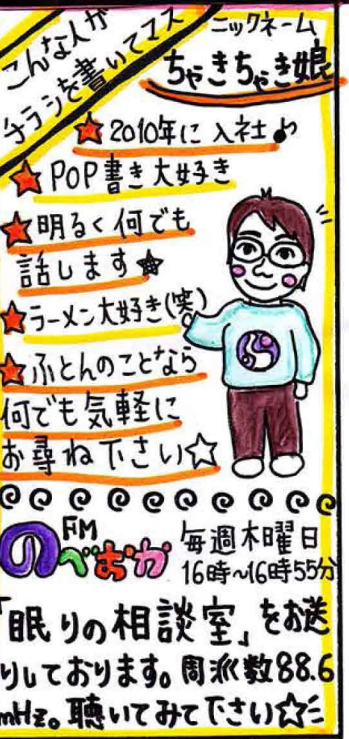 こんな人が
チラシを書いてマス
ニックネーム
ちゃきちゃき娘
★2010年に入社♪
★POP書き大好き
★明るく何でも
話します★
★ラーメン大好き(笑)
★ふとんのことなら
何でも気軽に
お尋ね下さい☆
FM
のべおか
毎週木曜日
16時~16時55分
「眠りの相談室」をお送
りしております。周派数88.6
mHz。聴いてみて下さい☆